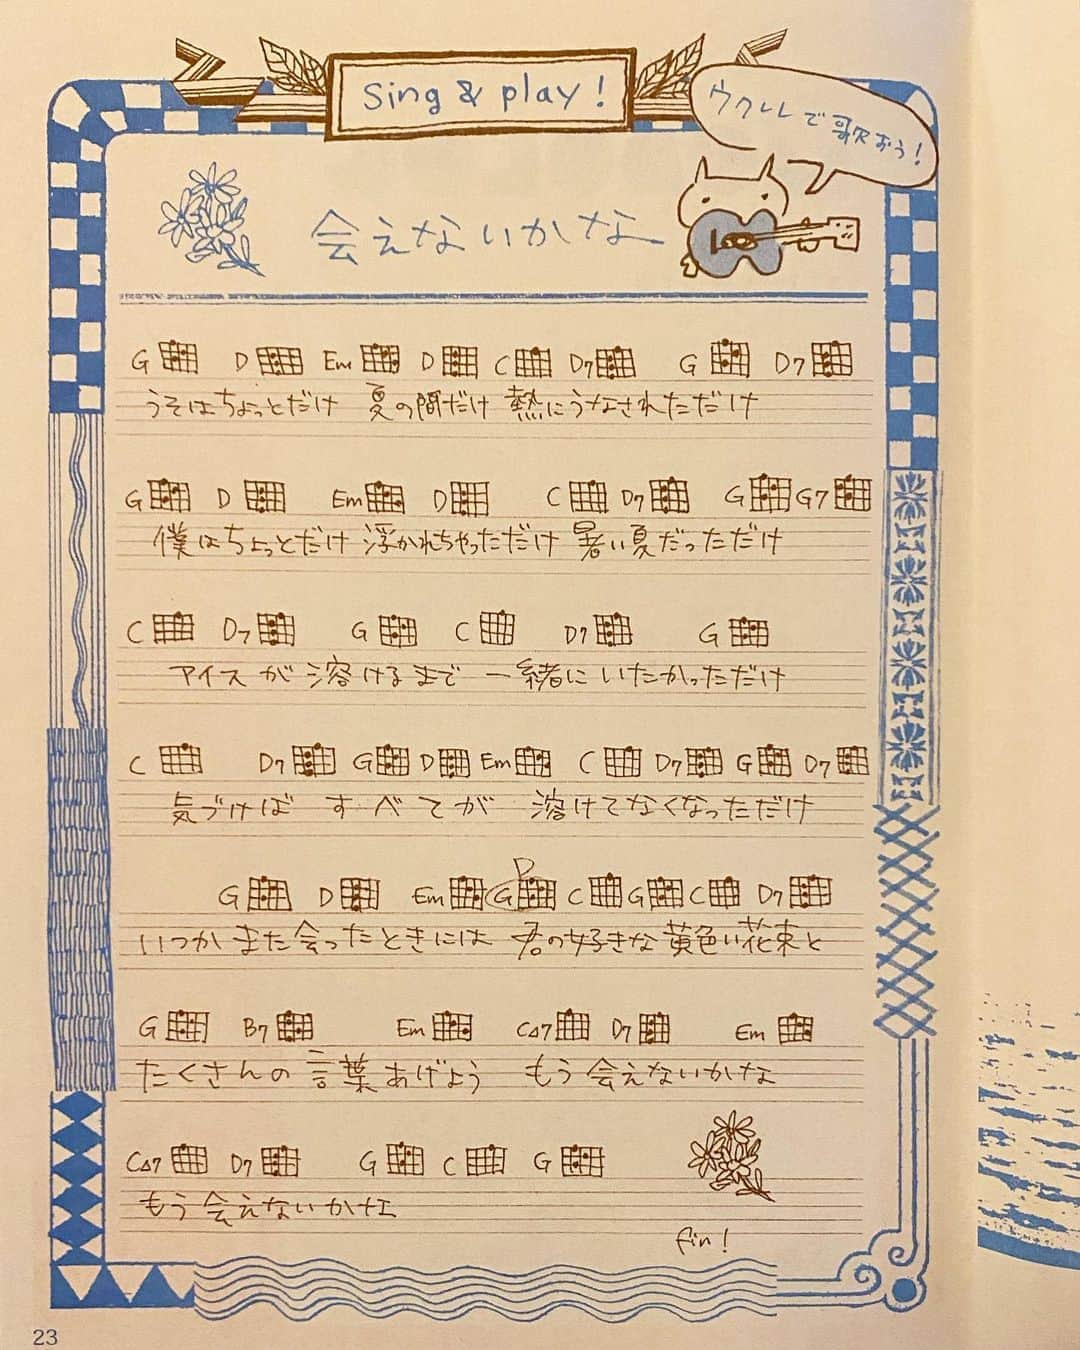 Sing & play!
ウクレレで歌おう!
会えないかな
G D Em D C D7 G D7
うそはちょっとだけ 夏の間だけ 熱にうなされただけ
G D Em D C D7 G G7
僕はちょっとだけ 浮かれちゃっただけ 暑い夏だっただけ
C D7 G C D7 G
アイスが溶けるまで 一緒にいたかっただけ
C D7 G D Em C D7 G D7
気づけば すべてが 溶けてなくなっただけ
D
G D Em G C G C D7
いつかまた会ったときには 君の好きな黄色い花束と
G B7 Em C△7 D7 Em
たくさんの言葉あげよう もう会えないかな
C△7 D7 G C G
もう会えないかな
fin!
23